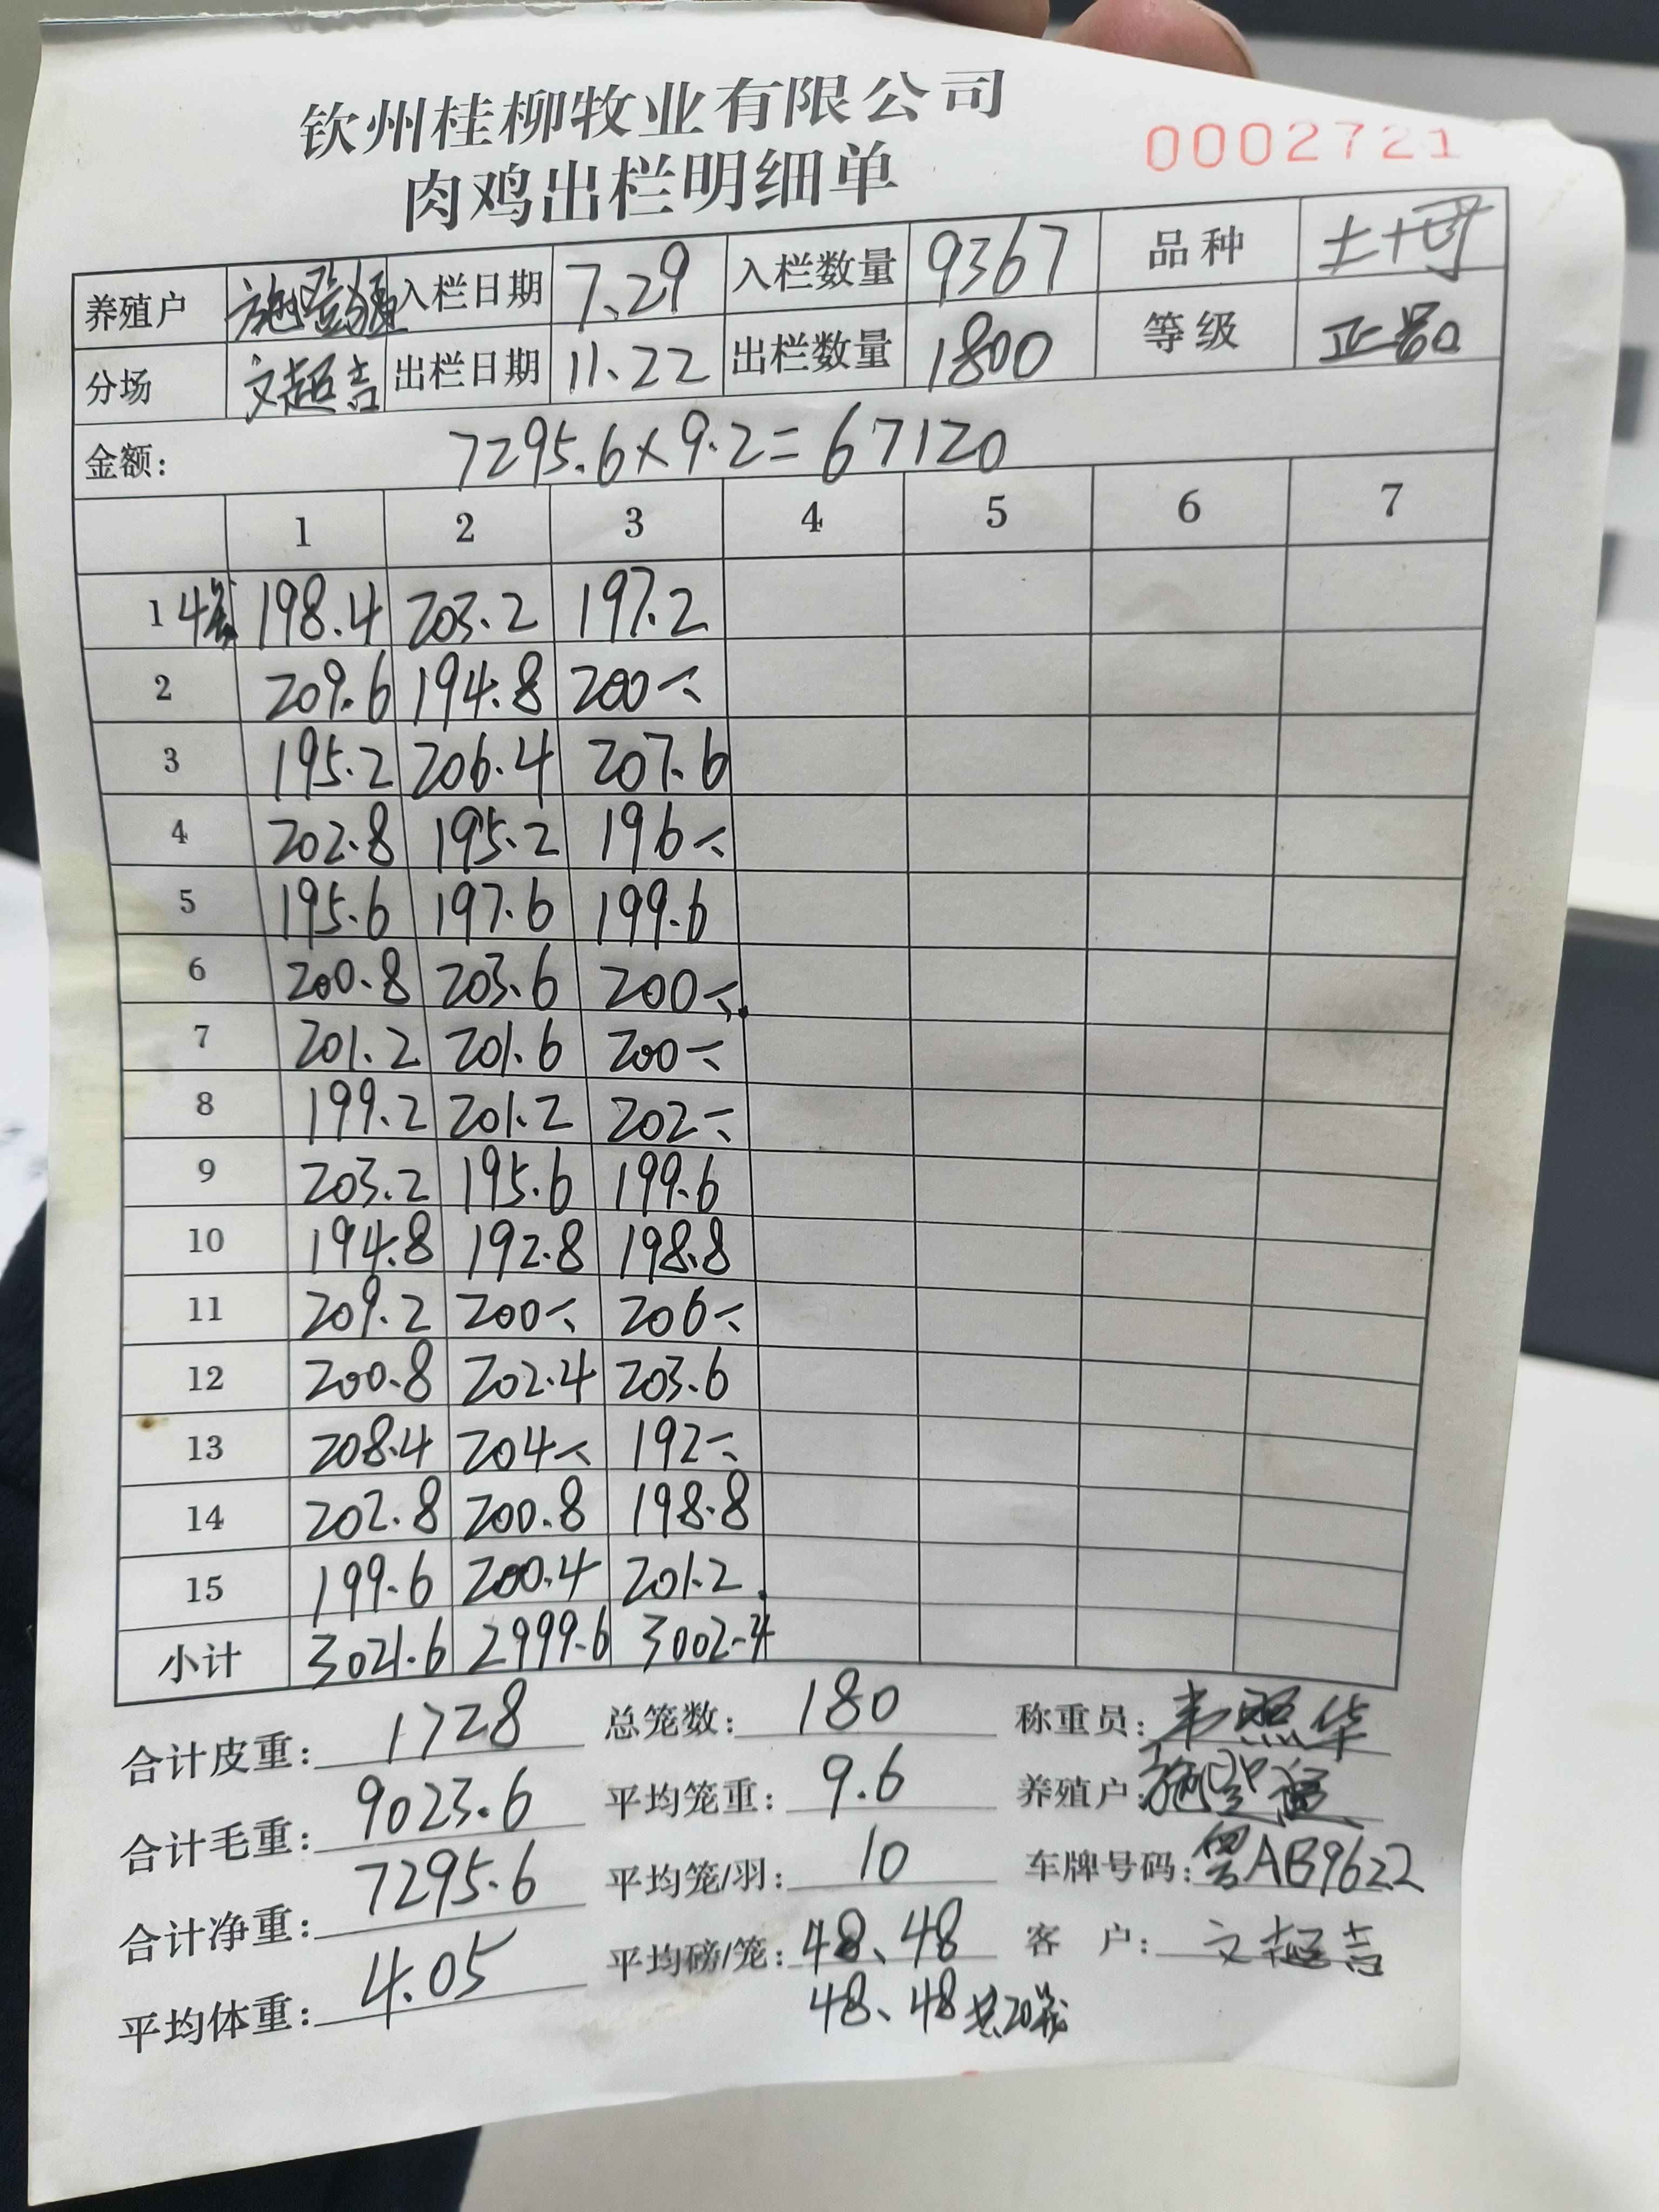 钦州桂柳牧业有限公司
肉鸡出栏明细单
0002721
养殖户 入栏日期 7.29 入栏数量 9367 品种
分场 文超吉 出栏日期 11.22 出栏数量 1800 等级 正品
金额: 7295.6×9.2=67120
1 2 3 4 5 6 7
1 4笼 198.4 203.2 197.2
2 209.6 194.8 200
3 195.2 206.4 207.6
4 202.8 195.2 196
5 195.6 197.6 199.6
6 200.8 203.6 200
7 201.2 201.6 200
8 199.2 201.2 202
9 203.2 195.6 199.6
10 194.8 192.8 198.8
11 209.2 200 206
12 200.8 202.4 203.6
13 208.4 204 192
14 202.8 200.8 198.8
15 199.6 200.4 201.2
小计 3021.6 2999.6 3002.4
合计皮重: 1728 总笼数: 180 称重员: 韦照华
合计毛重: 9023.6 平均笼重: 9.6 养殖户:
合计净重: 7295.6 平均笼/羽: 10 车牌号码: 粤AB9622
平均体重: 4.05 平均磅/笼: 48、48 客 户: 文超吉
48、48